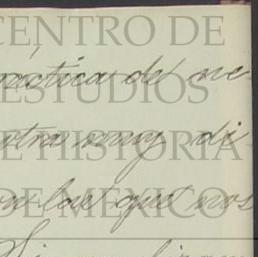 CENTRO DE
práctica de ne
ESTUDIOS
muy di
DE HISTORIA
con los que nos
DE MÉXICO